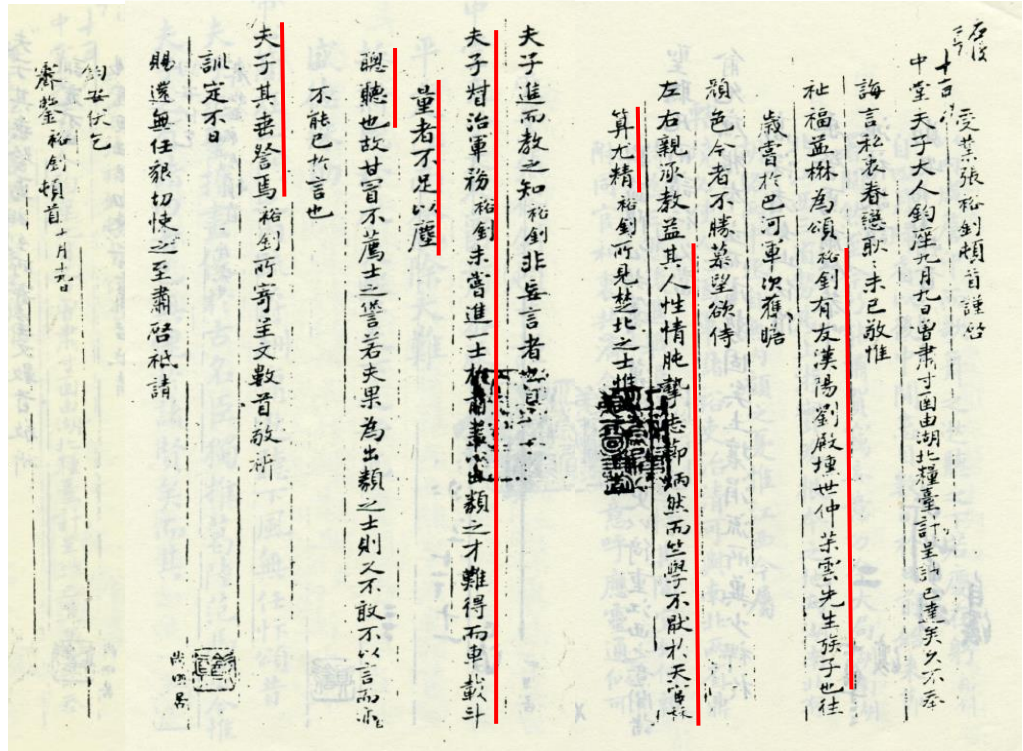 受業張裕釗頓首謹啓
中堂夫子大人鈞座九月九日曾肅寸函由湖北糧臺計呈
誨言私衷眷戀耿耿未已敬惟
祉福益楙為頌裕釗有友漢陽劉殿壎世仲茶雲先生族子也往
歲嘗於巴河軍次獲瞻
顏色今者不勝慕望欲侍
左右親承教益其人性情肫摯志節炳然而竺學不厭於天
算尤精裕釗所見楚北之士惟
夫子進而教之知裕釗非妄言者也
夫子督治軍務裕釗未嘗進一士於出類之才難得而車載斗
量者不足以塵
聰聽也故甘冒不薦士之咎若夫果為出類之士則又不敢不以言而亦
不能已於言也
夫子其垂詧焉裕釗所寄呈文數首敬祈
訓定不日
賜還無任懇切悚之至肅啓祗請
鈞安伏乞
齋鑒裕釗頓首十月